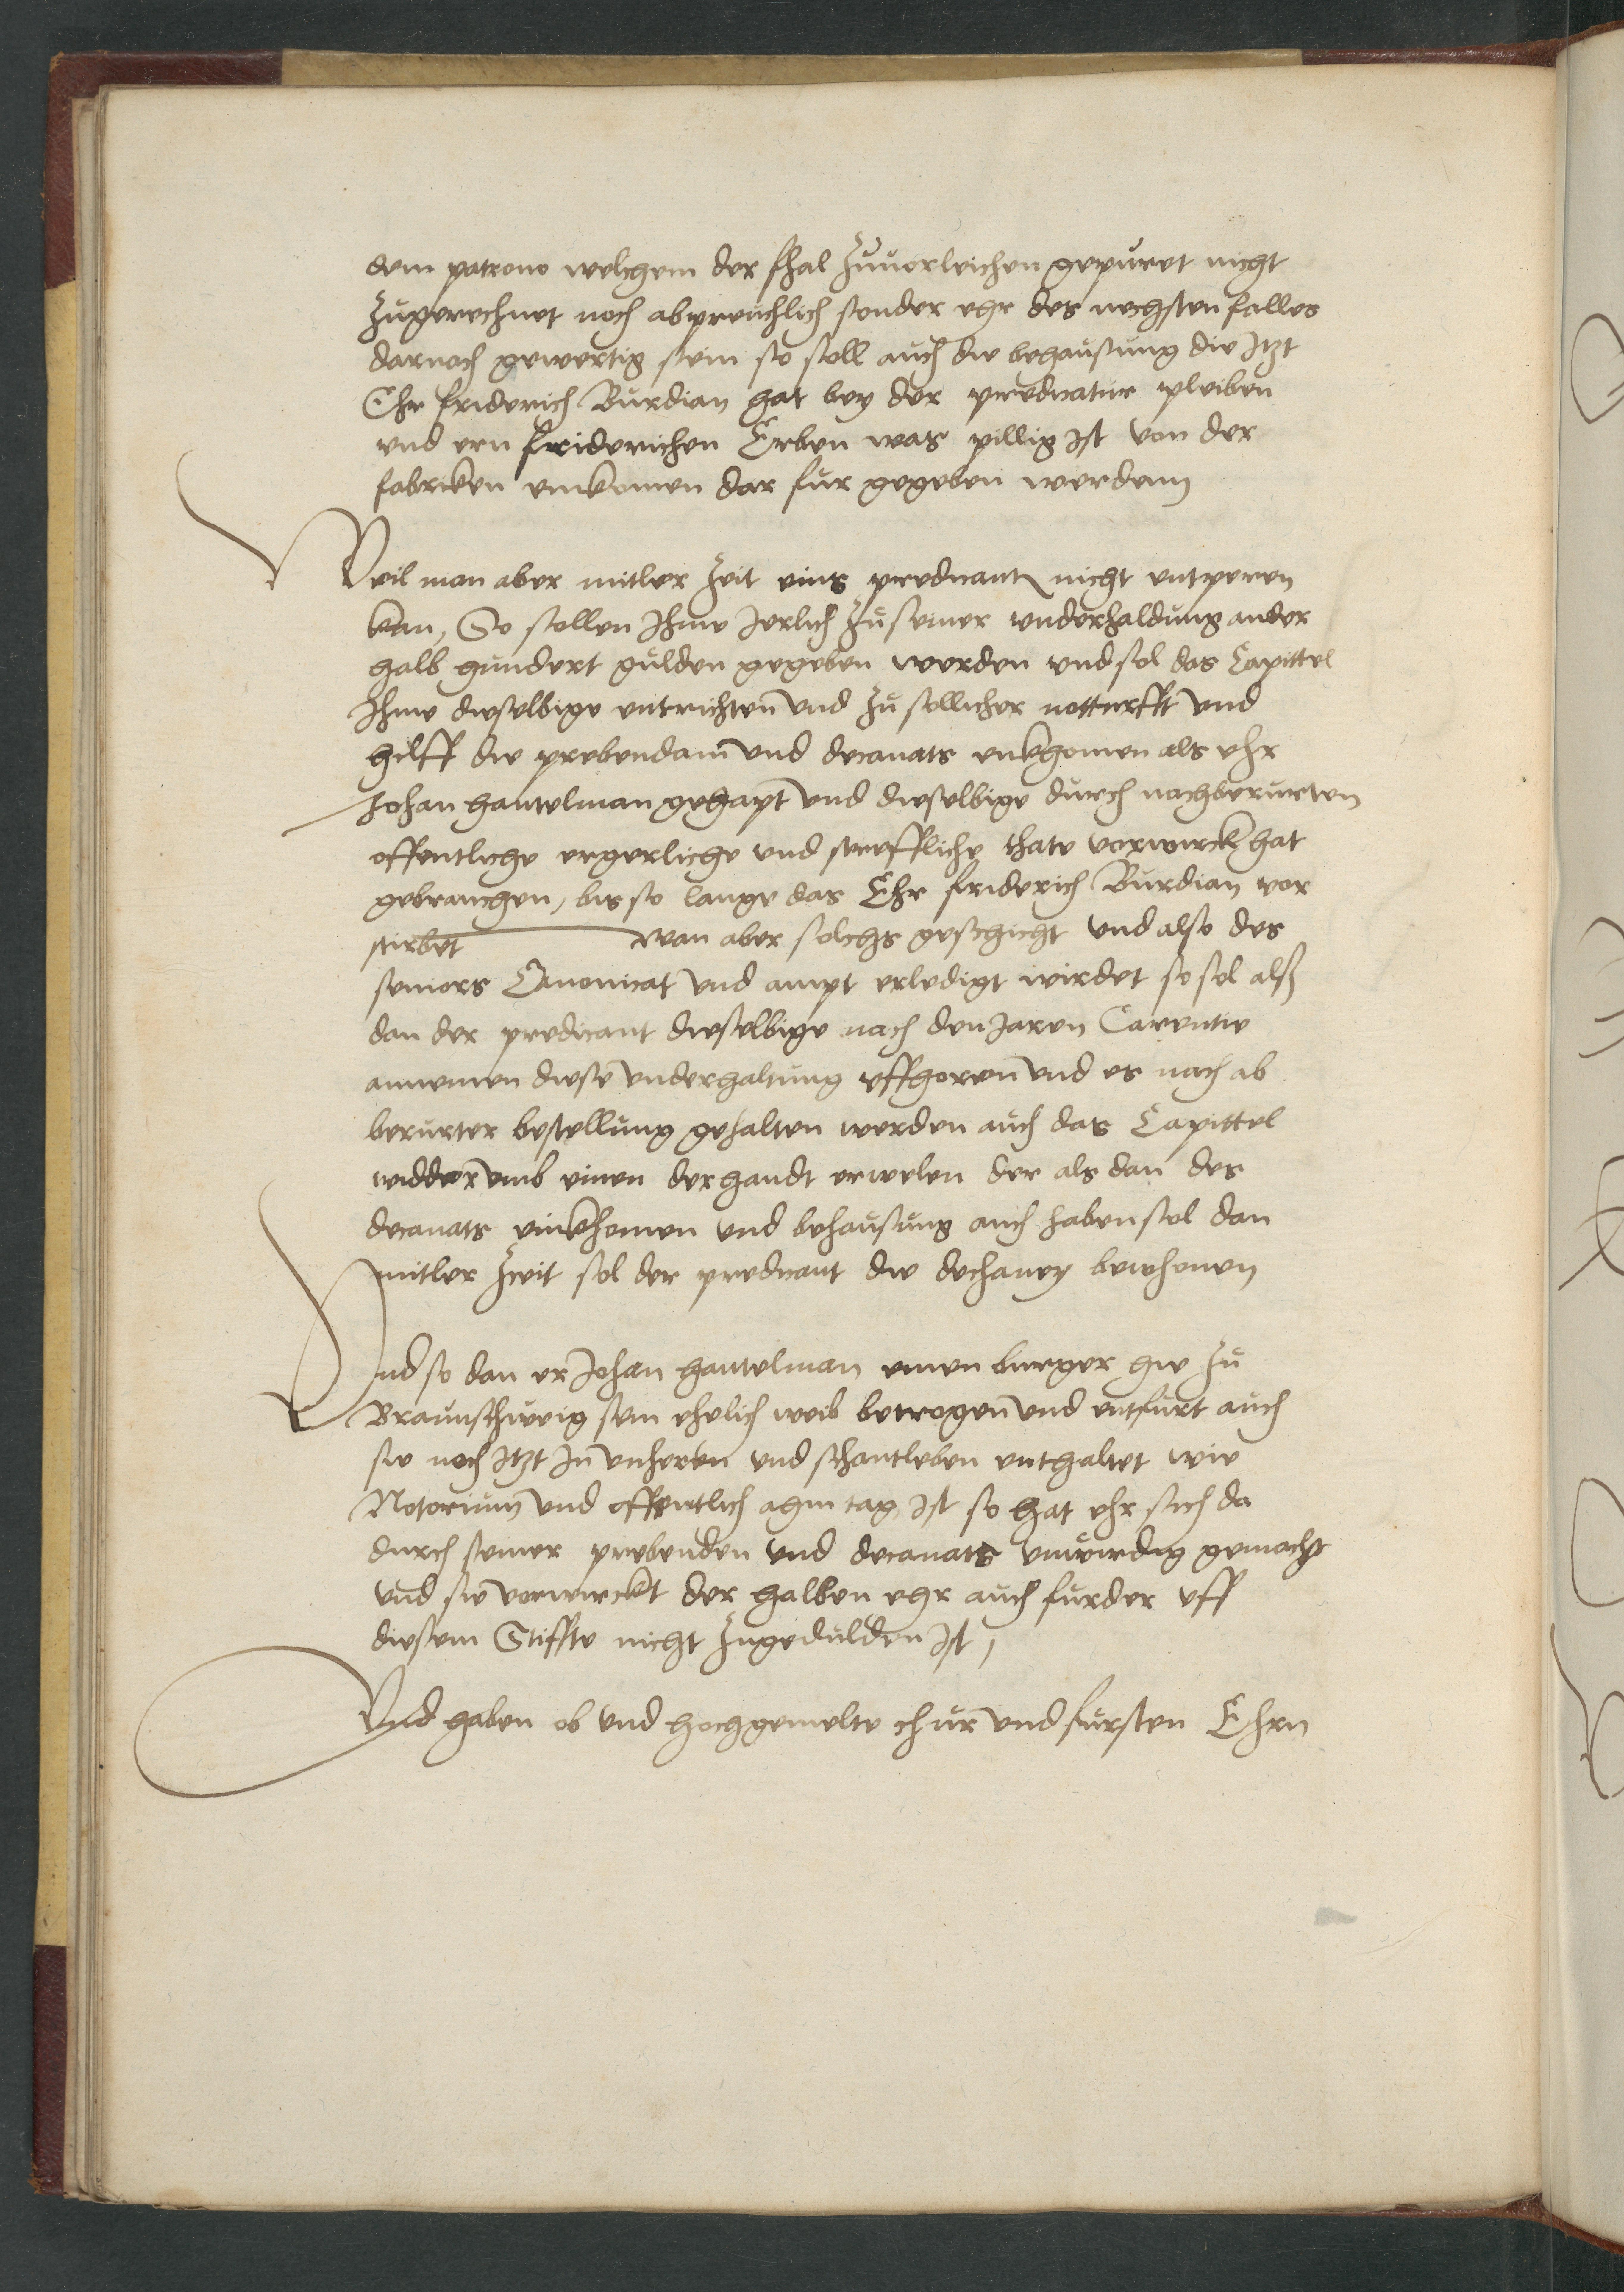 dem patrono welchem der fhal zuuorleichen gepuret nicht
zugerechnet noch abpreuchlich sonder ehr des nechsten falles
darnach gewertig sein so soll auch die behausung die Itzt
Ehr friderich Burdian hat bey der predicatur pleiben
vnd ern friderichen Erben was pillig ist von der
fabricken einkomen dar fur gegeben werdenn
Weil man aber mitler Zeit eins predicantn nicht entperen
kan, So sollen Ihme Jerlich zu seiner vnderhaldung ander
halb hundert gulden gegeben werden vnd sol das Capittel
Ihme dieselbige entrichten vnd zu sollicher notturfft vnd
hilff die prebendam vnd decanats einkhomen als ehr
Johan hantelman gehapt vnd dieselbige durch nachberurten
offentliche ergerliche vnd streffliche thate vorwirckt hat
gebrauchen, bis so lange das Ehr friderich Burdian vor
stirbet wan aber solchs geschicht vnd also des
seniors Canonicat vnd ampt erledigt wirdet so sol alß
dan der predicant dieselbige nach den Jaren Carentie
annemen diese vnderhaltung uffhoren vnd es nach ab
berurter bestellung gehalten werden auch das Capittel
widder vmb einen derhandt erwelen der als dan des
decanats einkhomen vnd behausung auch haben sol dan
mitler zeit sol der predicant die dechaney bewhonen
Vnd so dan er Johan hantelman einen burger hie zu
Braunschweig sein ehelich weib betrogen vnd entfurt auch
sie noch Itzt In vnheren vnd schantleben enthaltet wie
Notorium vnd offentlich ahm tag ist so hat ehr sich da
durch seiner prebenden vnd decanats vnwirdig gemacht
vnd sie vorwirckt der halben ehr auch furder uff
diesem Stiffte nicht zugedulden ist,
Vnd haben ob vnd hochgemelte chur vnd fursten Ehrn